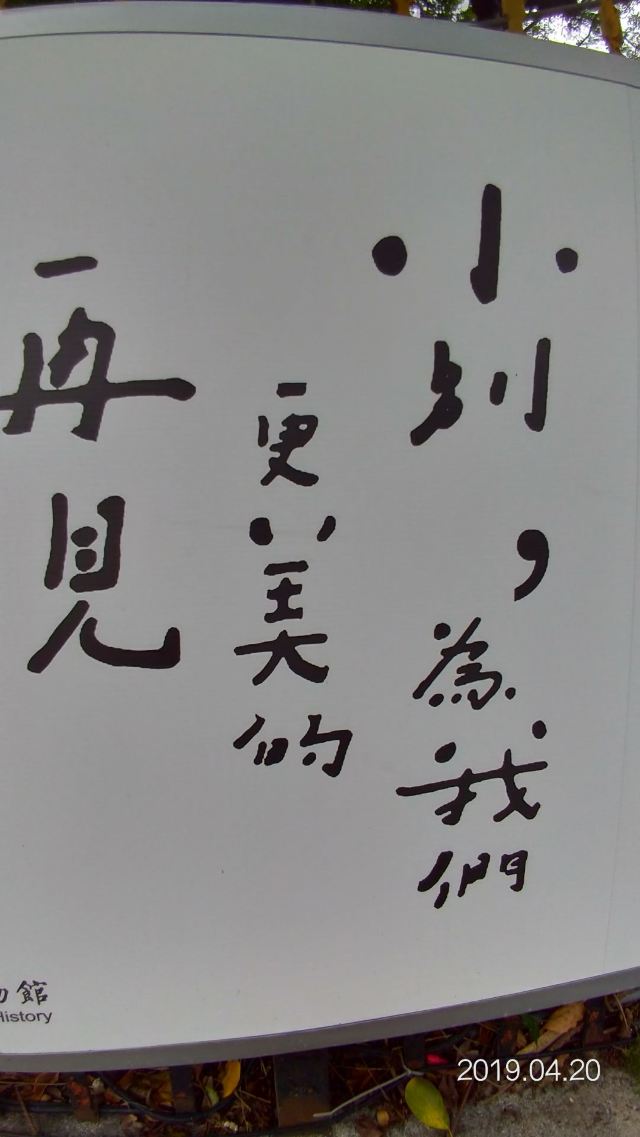 小別，為我們
更美的
再見
物館
History
2019.04.20